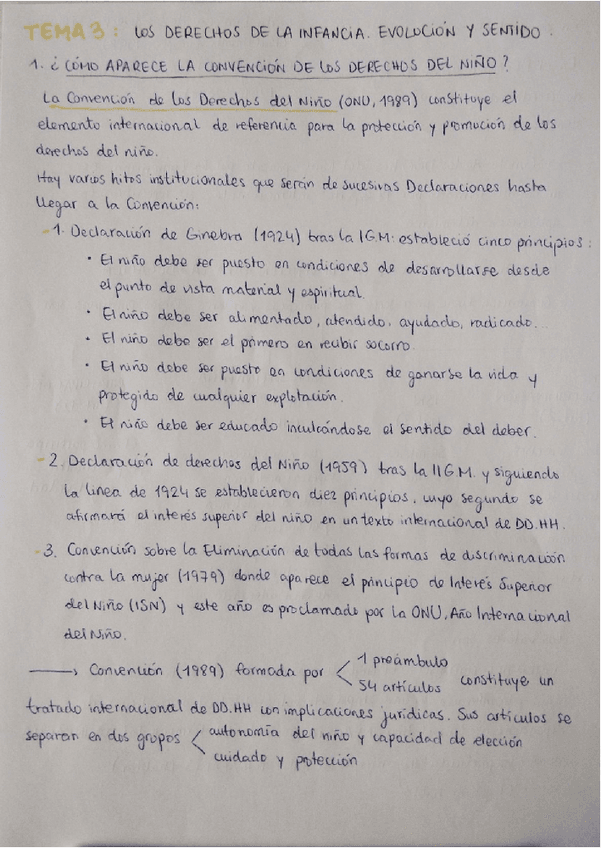 TEMA 3: LOS DERECHOS DE LA INFANCIA. EVOLUCIÓN Y SENTIDO.
1. ¿CÓMO APARECE LA CONVENCIÓN DE LOS DERECHOS DEL NIÑO?
La Convención de los Derechos del Niño (ONU, 1989) constituye el
elemento internacional de referencia para la protección y promoción de los
derechos del niño.
Hay varios hitos institucionales que serán de sucesivas Declaraciones hasta
llegar a la Convención:
-1. Declaración de Ginebra (1924) tras la I G.M: estableció cinco principios:
· El niño debe ser puesto en condiciones de desarrollarse desde
el punto de vista material y espiritual.
· El niño debe ser alimentado, atendido, ayudado, radicado...
· El niño debe ser el primero en recibir socorro.
· El niño debe ser puesto en condiciones de ganarse la vida y
protegido de cualquier explotación.
· El niño debe ser educado inculcándose el sentido del deber.
-2. Declaración de derechos del Niño (1959) tras la II G.M. y siguiendo
la línea de 1924 se establecieron diez principios, cuyo segundo se
afirmará el interés superior del niño en un texto internacional de DD.HH.
-3. Convención sobre la Eliminación de todas las formas de discriminación
contra la mujer (1979) donde aparece el principio de Interés Superior
del Niño (ISN) y este año es proclamado por la ONU, Año Internacional
del Niño.
→ Convención (1989) formada por < 1 preámbulo
54 artículos constituye un
tratado internacional de DD.HH con implicaciones jurídicas. Sus artículos se
separan en dos grupos < autonomía del niño y capacidad de elección
cuidado y protección